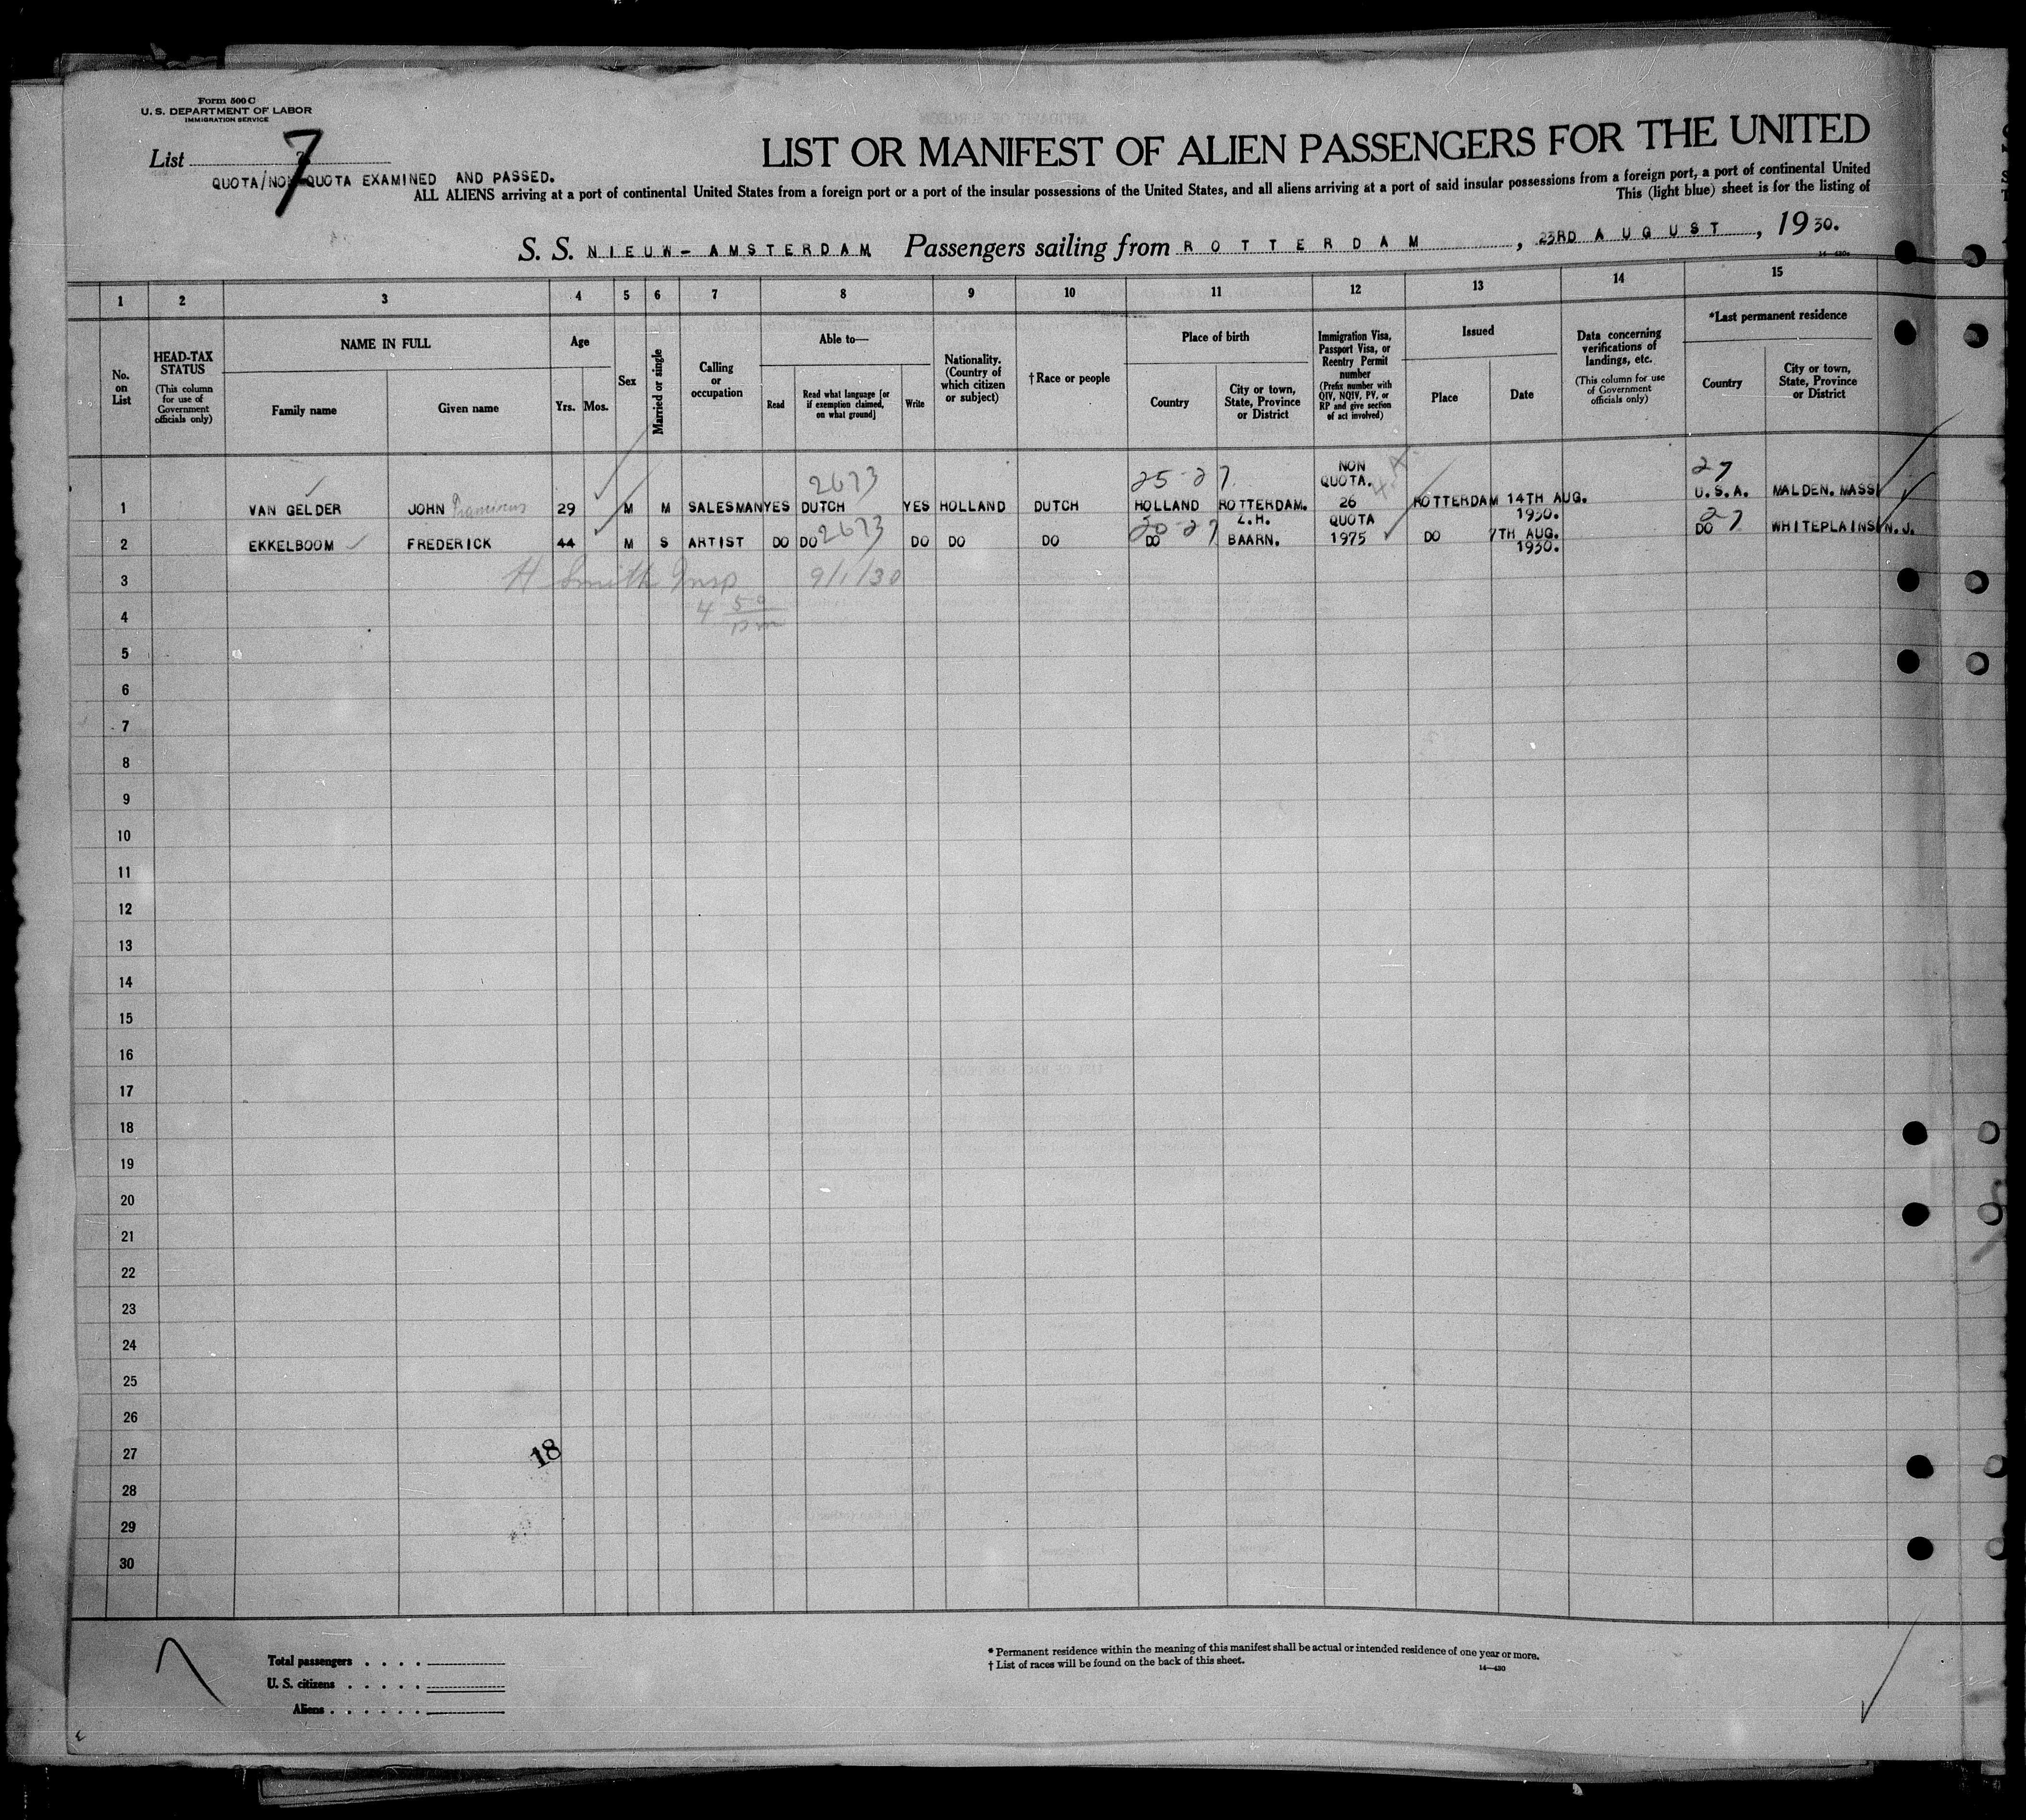 Form 500 C
U. S. DEPARTMENT OF LABOR
IMMIGRATION SERVICE
List 7
QUOTA/NON-QUOTA EXAMINED AND PASSED.
LIST OR MANIFEST OF ALIEN PASSENGERS FOR THE UNITED
ALL ALIENS arriving at a port of continental United States from a foreign port or a port of the insular possessions of the United States, and all aliens arriving at a port of said insular possessions from a foreign port, a port of continental United
This (light blue) sheet is for the listing of
S. S. NIEUW-AMSTERDAM Passengers sailing from ROTTERDAM, 23RD AUGUST, 1930.
14-430a
1 2 3 4 5 6 7 8 9 10 11 12 13 14 15
No. on List
HEAD-TAX STATUS
(This column for use of Government officials only)
NAME IN FULL
Family name
Given name
Age
Yrs. Mos.
Sex
Married or single
Calling or occupation
Able to—
Read
Read what language [or if exemption claimed, on what ground]
Write
Nationality. (Country of which citizen or subject)
†Race or people
Place of birth
Country
City or town, State, Province or District
Immigration Visa, Passport Visa, or Reentry Permit number
(Prefix number with QIV, NQIV, PV, or RP and give section of act involved)
Issued
Place
Date
Data concerning verifications of landings, etc.
(This column for use of Government officials only)
*Last permanent residence
Country
City or town, State, Province or District
2673 25-27. NON QUOTA. 27
1 VAN GELDER JOHN 29 M M SALESMAN YES DUTCH YES HOLLAND DUTCH HOLLAND ROTTERDAM. 26 ROTTERDAM 14TH AUG. 1930. U.S.A. MALDEN. MASS
2673 20-27 Z.H. QUOTA 27
2 EKKELBOOM FREDERICK 44 M S ARTIST DO DO DO DO DO DO BAARN. 1975 DO 7TH AUG. 1930. DO WHITEPLAINS N.J.
3 H Smith Insp 9/1/30
4 4 50 pm
5
6
7
8
9
10
11
12
13
14
15
16
17
18
19
20
21
22
23
24
25
26
27
18
28
29
30
Total passengers . . . .
U. S. citizens . . . . .
Aliens . . . . . .
* Permanent residence within the meaning of this manifest shall be actual or intended residence of one year or more.
† List of races will be found on the back of this sheet.
14-430